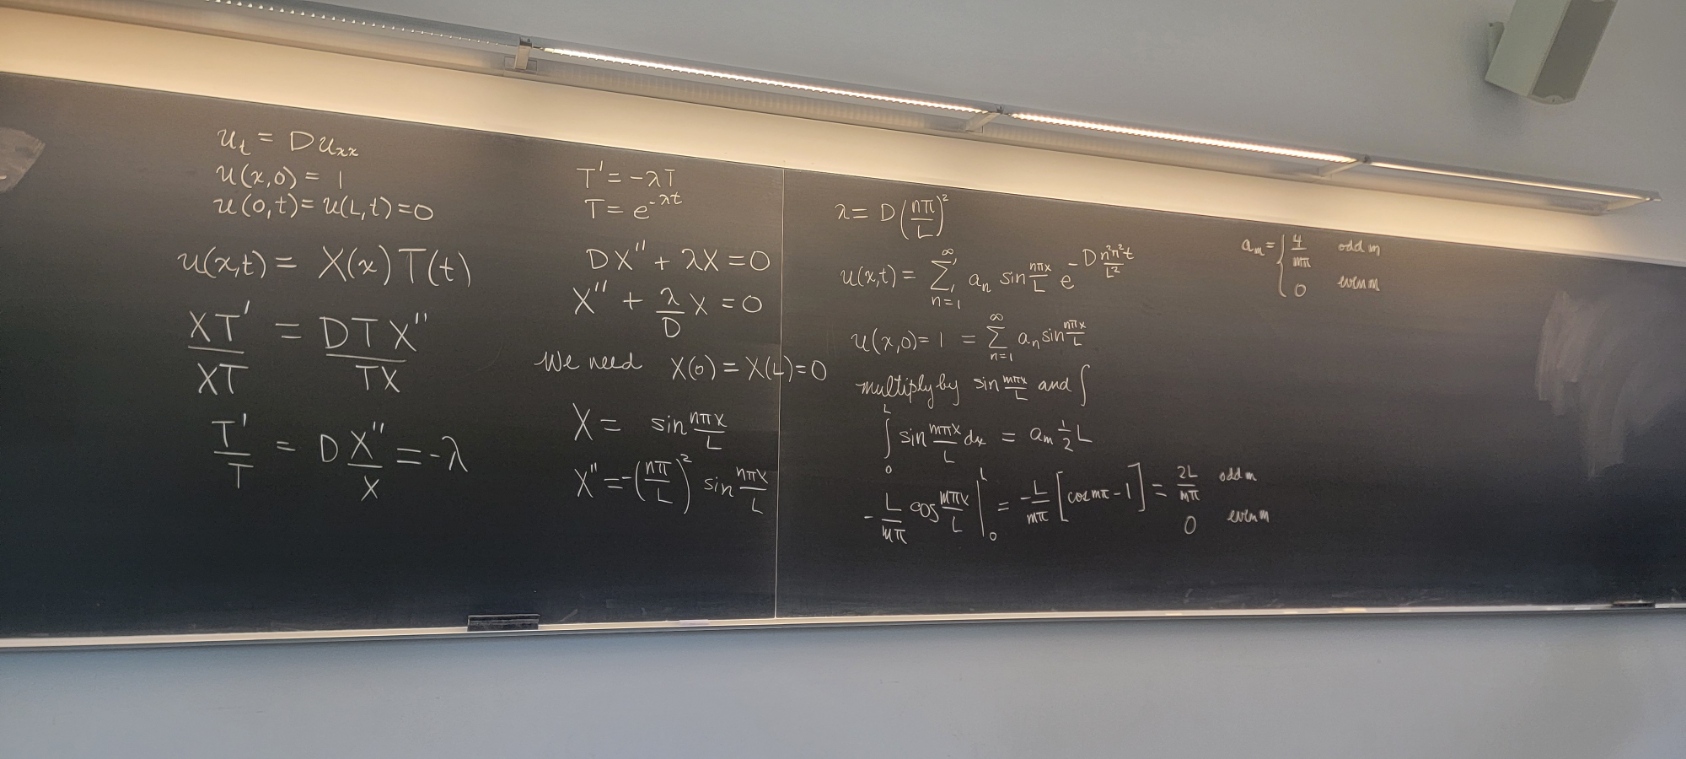 u_t = D u_xx
u(x,0) = 1
u(0,t) = u(L,t) = 0
u(x,t) = X(x) T(t)
XT'/XT = DTX''/TX
T'/T = D X''/X = -λ
T' = -λT
T = e^{-λt}
DX'' + λX = 0
X'' + λ/D X = 0
We need X(0) = X(L) = 0
X = sin nπx/L
X'' = -(nπ/L)² sin nπx/L
λ = D(nπ/L)²
u(x,t) = ∑_{n=1}^{∞} a_n sin nπx/L e^{-D n²π²t/L²}
u(x,0) = 1 = ∑_{n=1}^{∞} a_n sin nπx/L
multiply by sin mπx/L and ∫
∫_0^L sin mπx/L dx = a_m 1/2 L
-L/mπ cos mπx/L |_0^L = -L/mπ [cos mπ - 1] = 2L/mπ odd m
0 even m
a_m = { 4/mπ odd m
0 even m